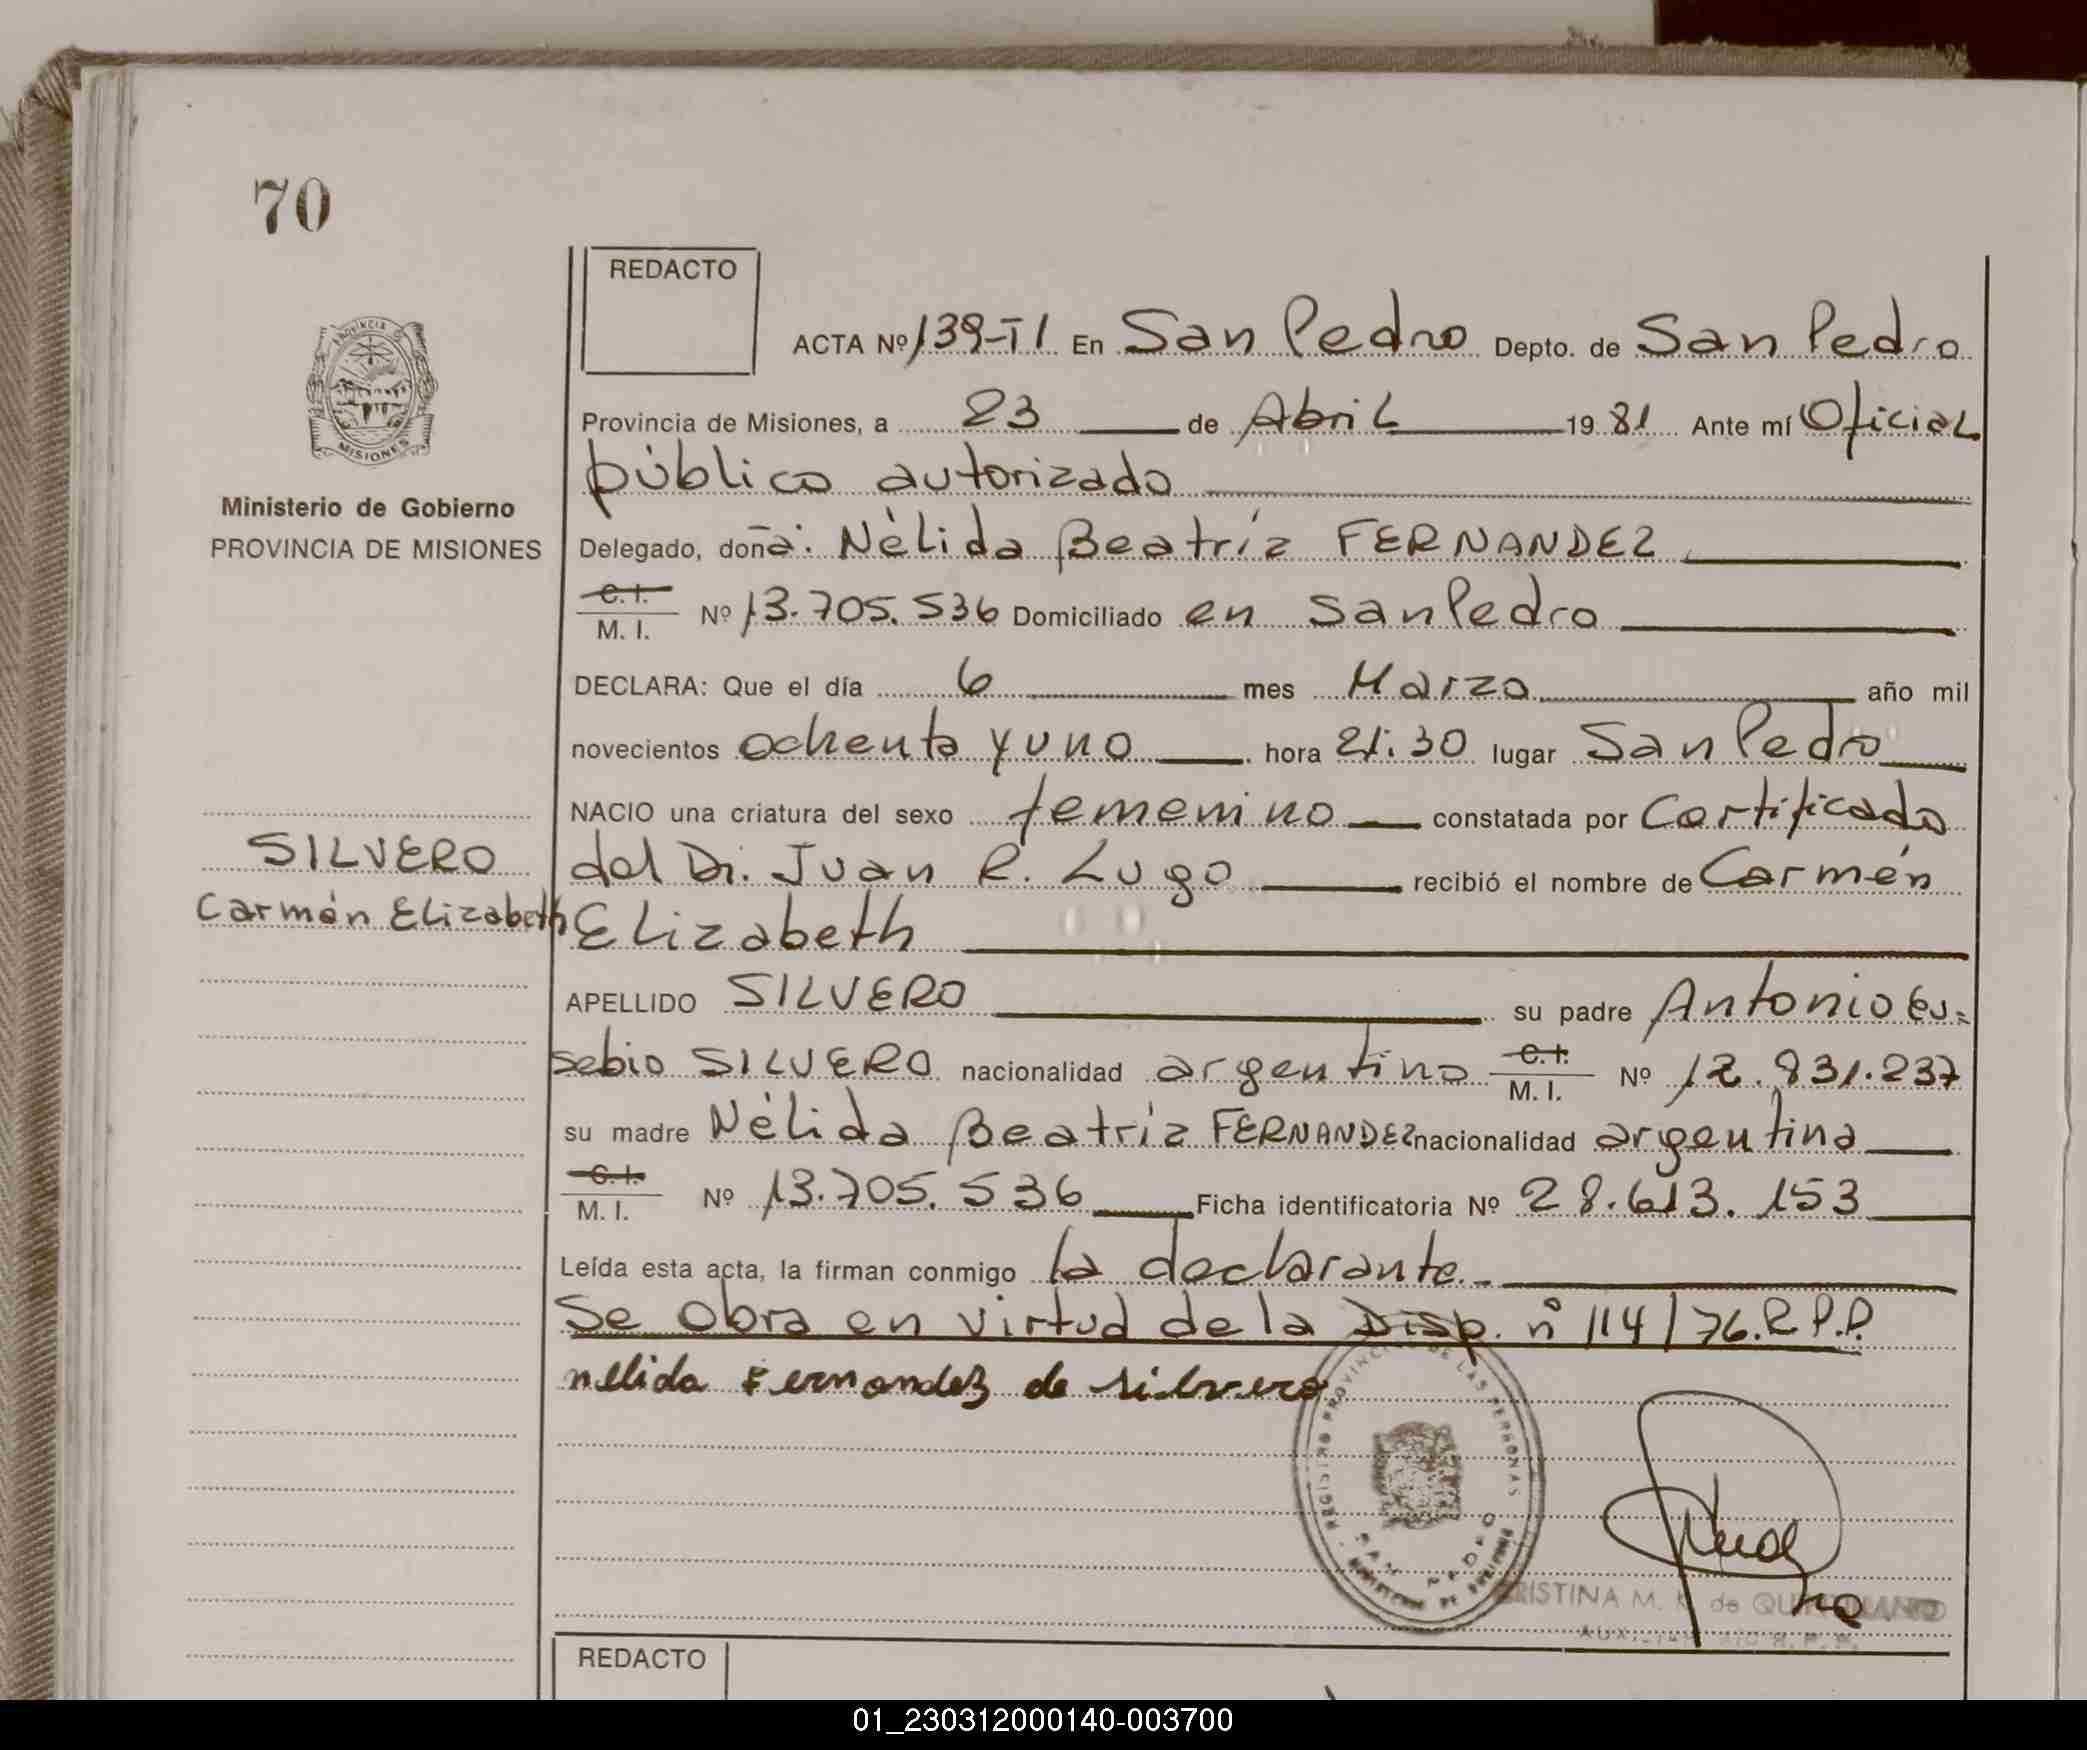 70
REDACTO
ACTA Nº 139-TI En San Pedro Depto. de San Pedro
Provincia de Misiones, a 23 de Abril 1981 Ante mí Oficial
público autorizado
Delegado, doña: Nélida Beatríz FERNANDEZ
C. I.
M. I. Nº 13.705.536 Domiciliado en San Pedro
DECLARA: Que el día 6 mes Marzo año mil
novecientos ochenta y uno hora 21:30 lugar San Pedro
NACIO una criatura del sexo femenino constatada por Certificado
del Dr. Juan R. Lugo recibió el nombre de Carmén
Elizabeth
APELLIDO SILVERO su padre Antonio Eu=
sebio SILVERO nacionalidad argentino C. I. M. I. Nº 12.831.237
su madre Nélida Beatríz FERNANDEZ nacionalidad argentina
C. I.
M. I. Nº 13.705.536 Ficha identificatoria Nº 28.613.153
Leída esta acta, la firman conmigo la declarante.-
Se obra en virtud de la Disp. nº 114/76.R.P.P.
nelida Fernandez de silvero
PROVINCIA DE MISIONES
Ministerio de Gobierno
PROVINCIA DE MISIONES
SILVERO
Carmén Elizabeth
REGISTRO PROVINCIAL DE LAS PERSONAS
SAN PEDRO
MINISTERIO DE GOBIERNO
CRISTINA M. K. de
REDACTO
01_230312000140-003700